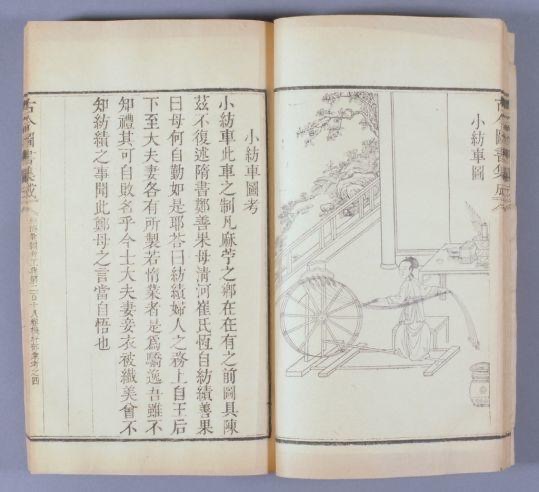 古今圖書集成
小紡車圖
小紡車圖考
小紡車此車之制凡麻苧之鄉在在有之前圖具陳
茲不復述隋書鄭善果母清河崔氏恆自紡績善果
曰母何自勤如是耶荅曰紡績婦人之務上自王后
下至大夫妻各有所製若惰業者是爲驕逸吾雖不
知禮其可自敗名乎今士大夫妻妾衣被纖美曾不
知紡績之事聞此鄭母之言當自悟也
古今圖書集成